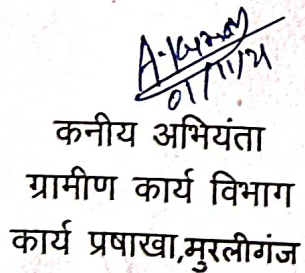 A.Kumar
01/11/21
कनीय अभियंता
ग्रामीण कार्य विभाग
कार्य प्रषाखा,मुरलीगंज